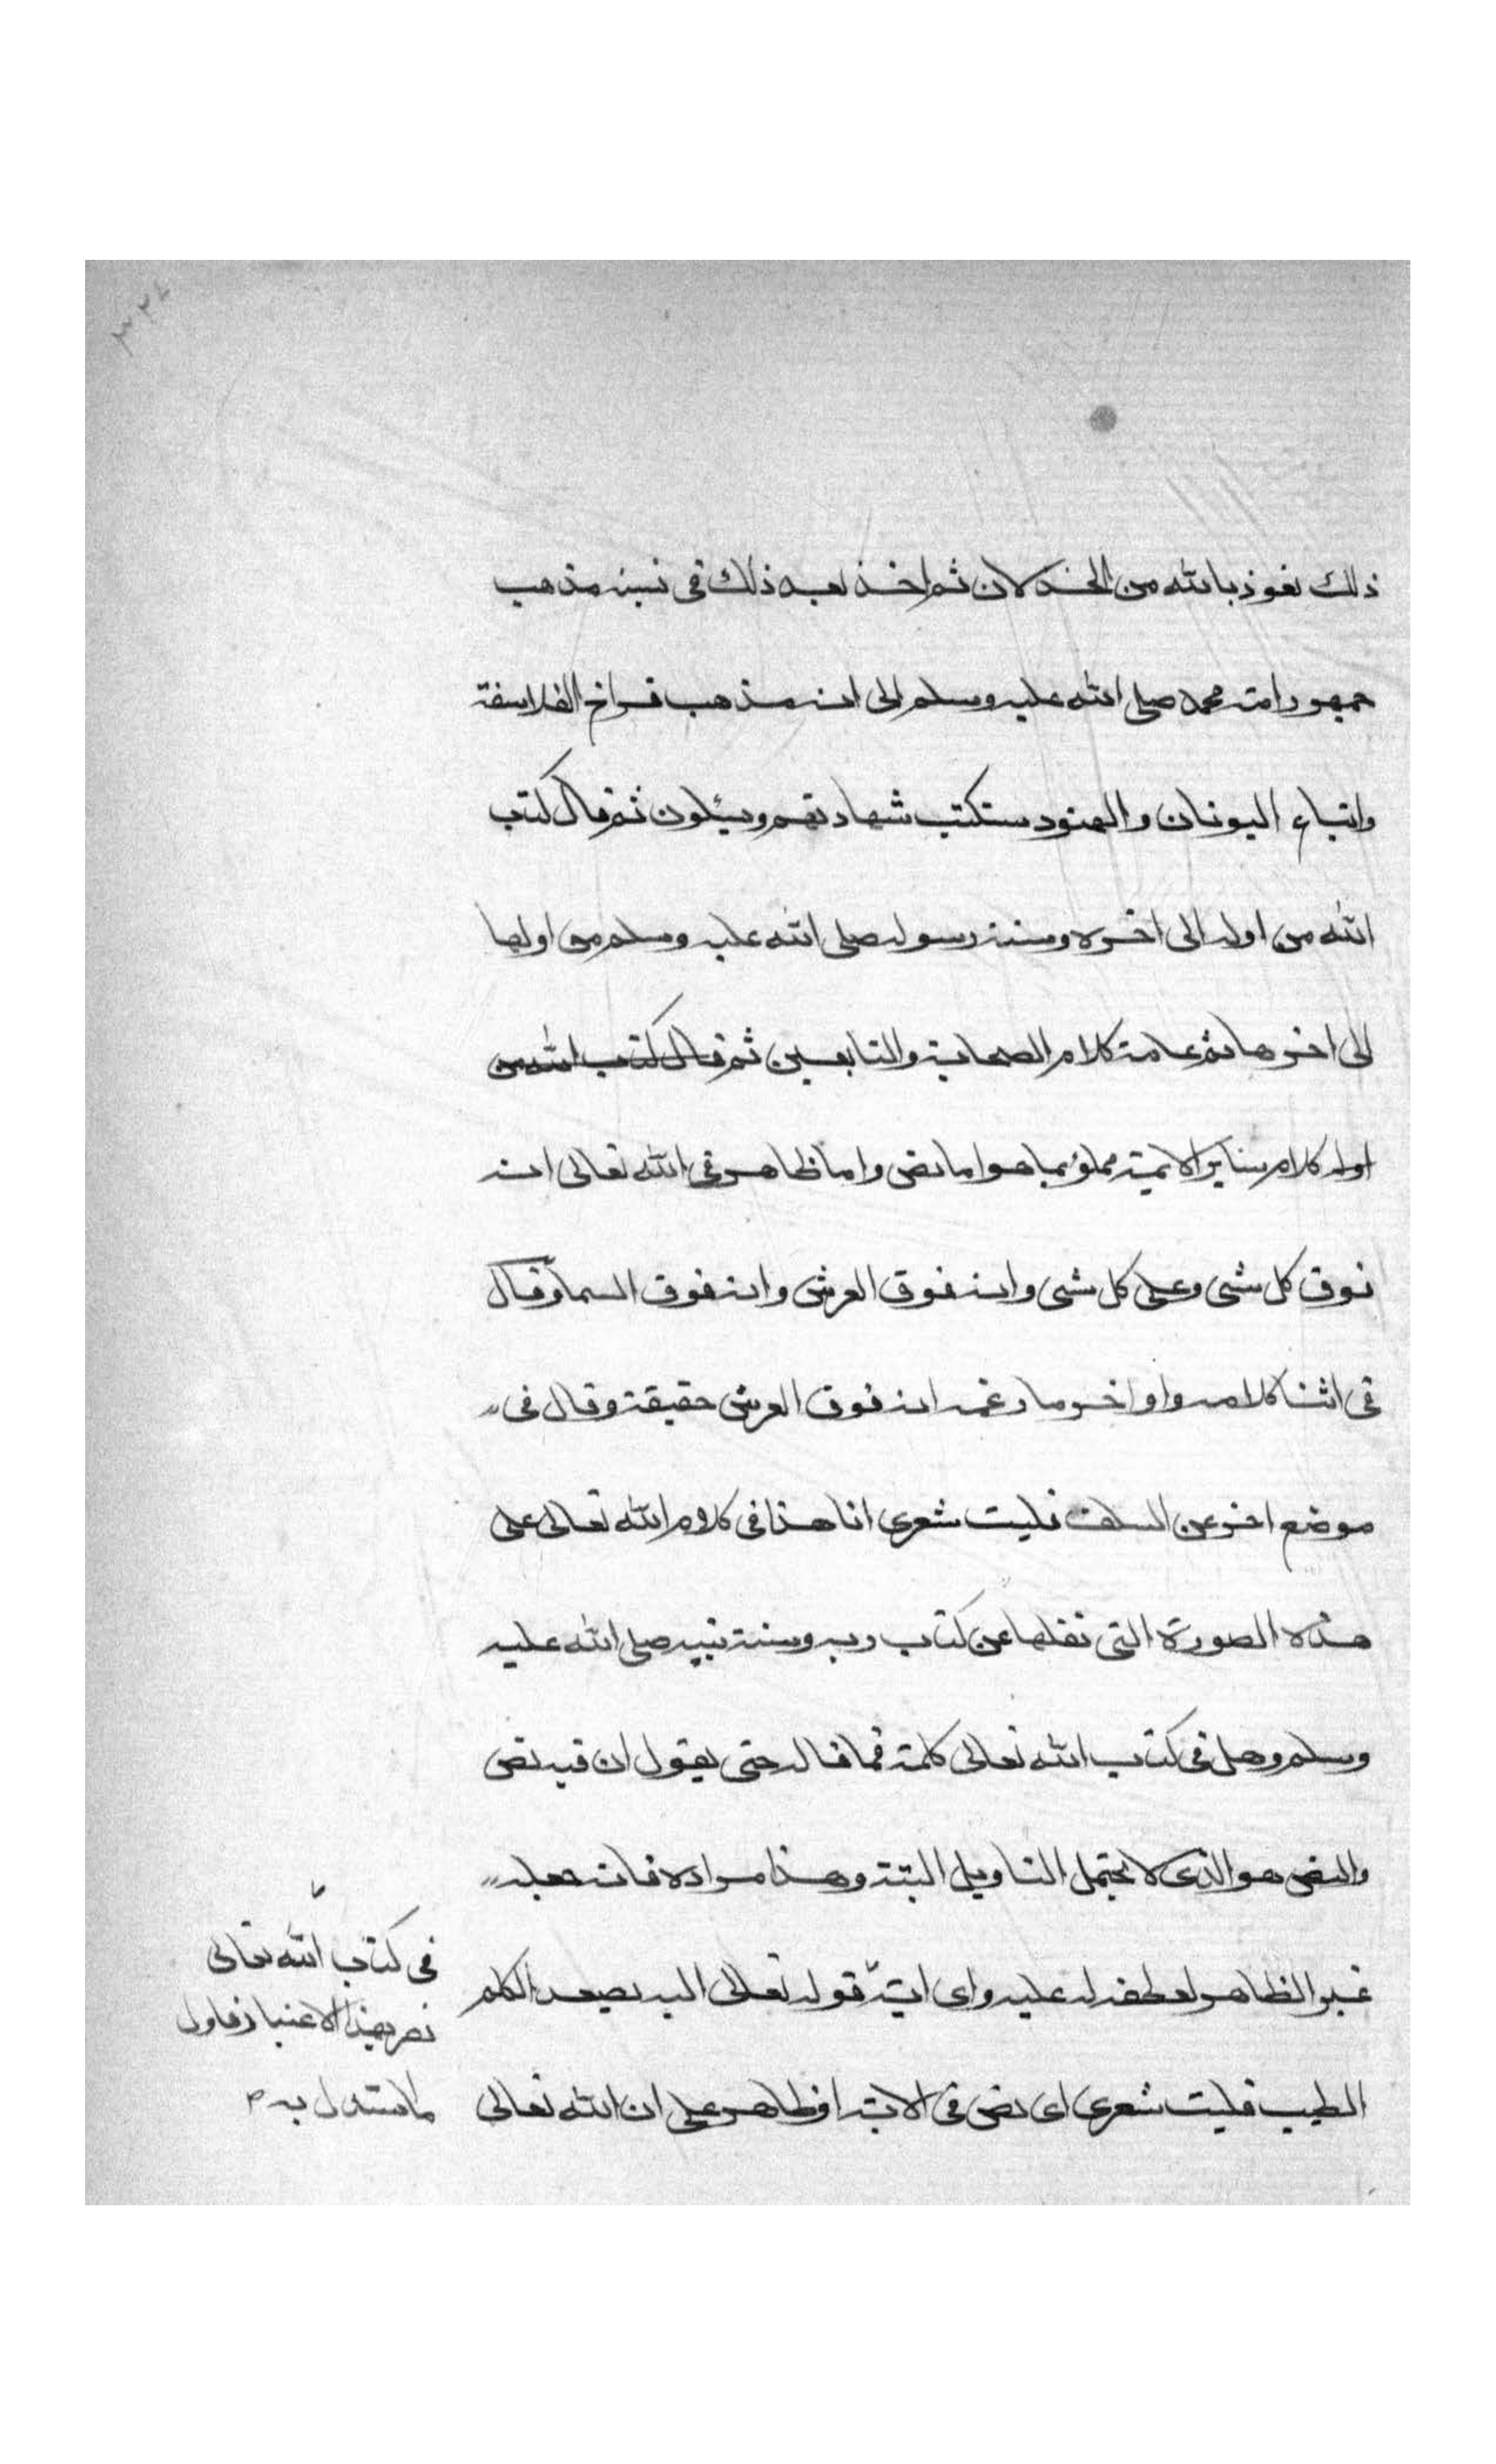 ٣٢٤
ذلك نعوذ بالله من الخذلان ثم اخذ بعد ذلك في نسبة مذهب
جمهور امة محمد صلى الله عليه وسلم الى انه مذهب فراخ الفلاسفة
واتباع اليونان والهنود ستكتب شهادتهم ويسئلون ثم قال كتب
الله من اوله الى اخره وسنة رسوله صلى الله عليه وسلم من اولها
الى اخرها ثم عامة كلام الصحابة والتابعين ثم قال كتب الله من
اوله كلام سائر الايمة مملؤ بما هو اما نص واما ظاهر في الله تعالى انه
فوق كل شى وعلى كل شى وانه فوق العرش وانه فوق السما وقال
في اثنا كلامه واواخر ما زعمه انه فوق العرش حقيقة وقال في
موضع اخر عن السلف فليت شعرى انا هذا في كلام الله تعالى على
هذه الصورة التى نقلها عن كتاب ربه وسنة نبيه صلى الله عليه
وسلم وهل في كتاب الله تعالى كلمة فما قاله حتى يقول ان فيه نص
والنص هو الذى لا يحتمل التاويل البتة وهذا مراده فانه جعله
غير الظاهر لعطفه له عليه واى اية قوله تعالى اليه يصعد الكلم
الطيب فليت شعرى اى نص في الاية او ظاهر على ان الله تعالى
في كتاب الله تعالى
نص بهذا الاعتبار فاول
ما استدل به